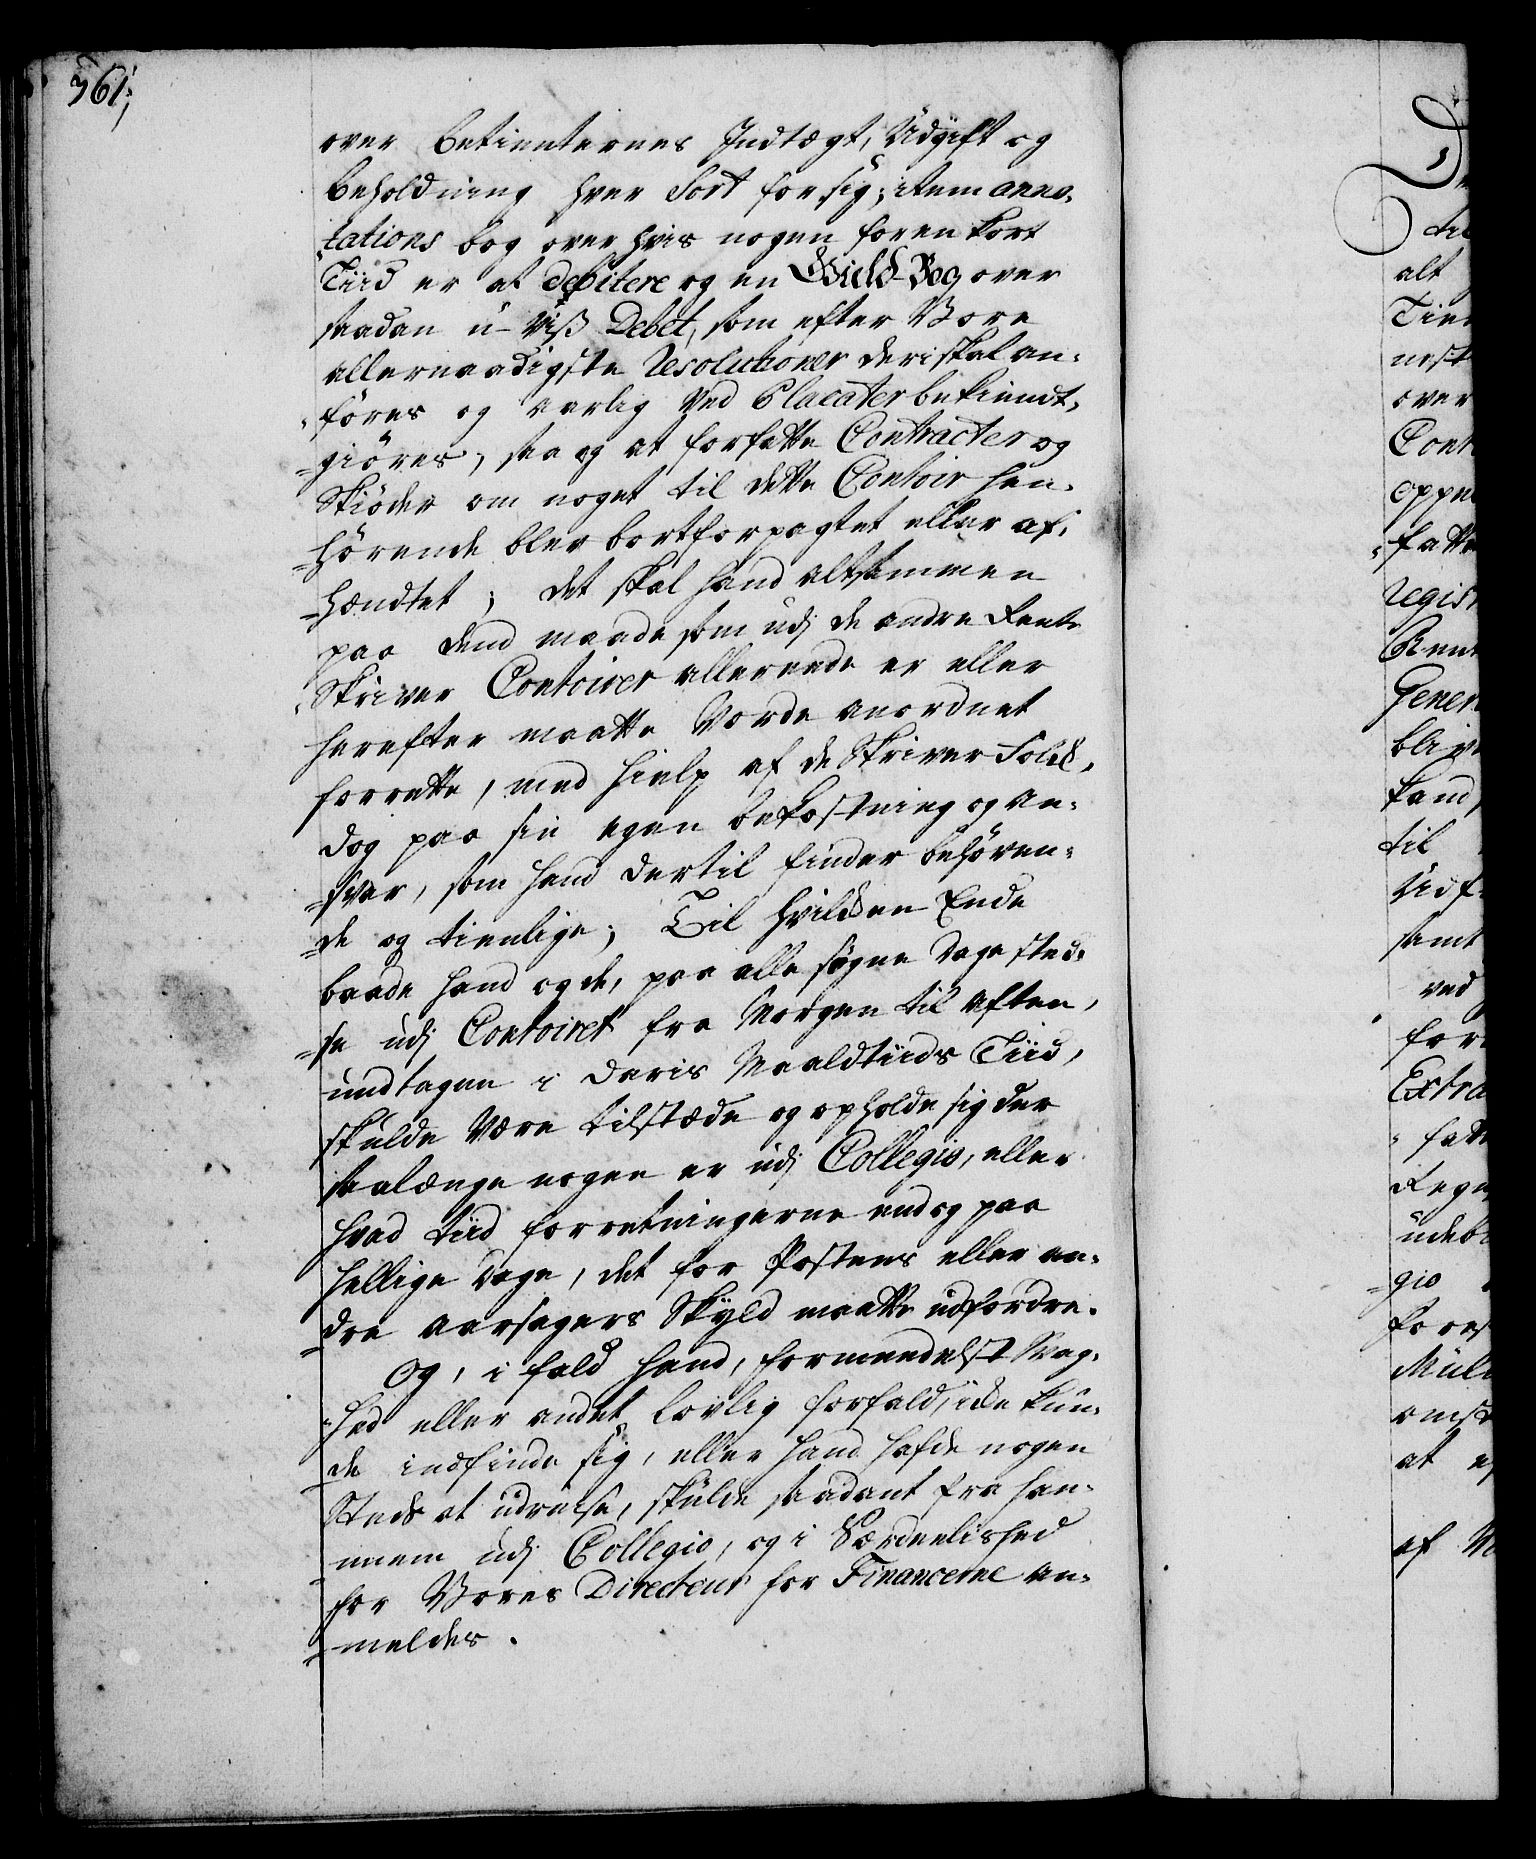 361,
over betienternes Indtægt, Udgift og
beholdning hver Sort for sig; item anno-
tations bog over hvis nogen for en kort
Tiid er at debitere og en Gield-Bog over
saadan u-viß Debet, som efter Vore
allernaadigste Resolutioner deri skal an-
føres og aarlig ved Placater bekiendt-
giøres, saa og at forfatte Contracter og
Skiøder om noget til dette Contoir hen-
hørende blev bortforpagtet eller af-
hændtet; det skal hand altsammen
paa dend maade som udj de andre Rente
Skriver Contoirer allereede er eller
herefter maatte vorde anordnet
forrette, med hielp af de Skriver Folck,
dog paa sin egen bekostning og an-
svar, som hand dertil finder behøren-
de og tienlige; Til hvilcken Ende
baade hand og de, paa alle søgne Dage sted-
se udj Contoiret fra Morgen til Aften,
undtagen i deris Maaldtiids Tiid,
skulde være tilstæde og opholde sig der
saalænge nogen er udj Collegio, eller
hvad tiid forretningerne endog paa
hellige Dage, det for Postens eller an-
dre aarsagers Skyld maatte udfordre.
Og, i fald hand, formeedelst Svag-
hed eller andet lovlig forfald, icke kun-
de indfinde sig, eller hand hafde nogen
Steds at udreise, skulde saadant fra han-
nem udj Collegio, og i Særdeelished
for Vores Directeur for Financerne an-
meldes.
til
alt
over
Cont
Regist
Gener
kand,
til
samt
ved
Extra
gio
at
af